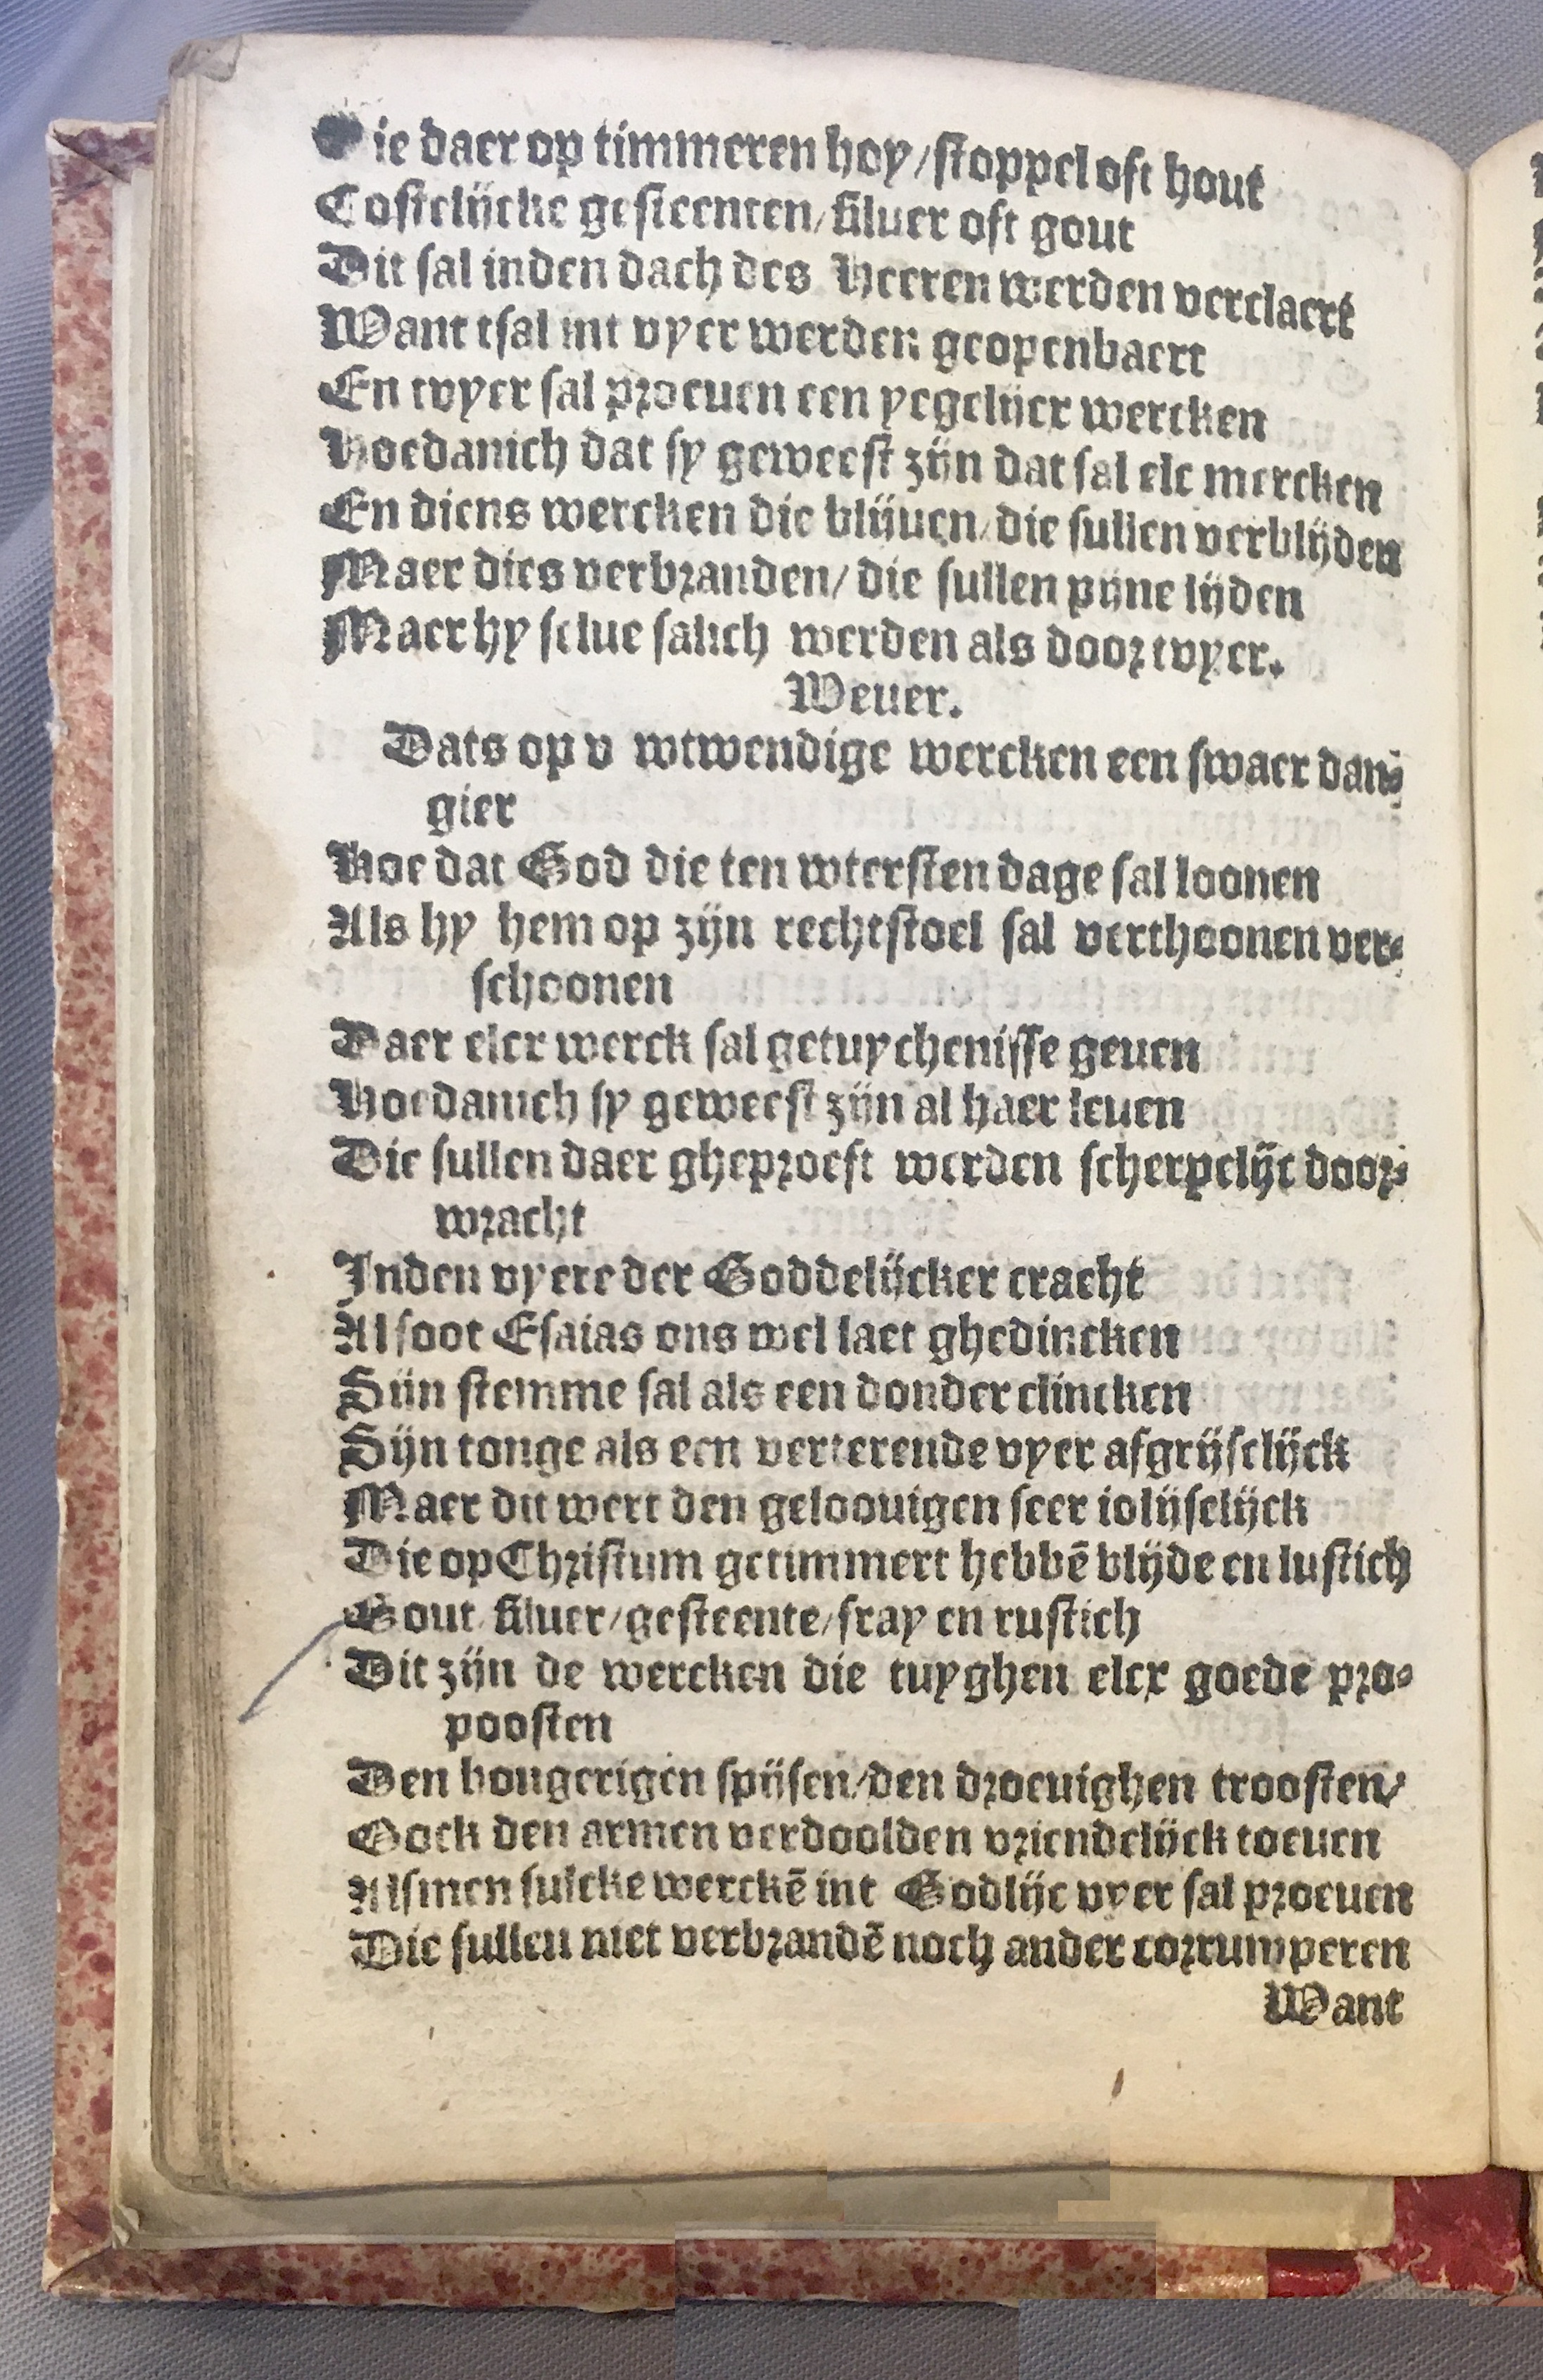 Die daer op timmeren hoy/stoppel oft hout
Costelijcke gesteenten/silver oft gout
Dit sal inden dach des Heeren werden verclaert
Want tsal int vyer werden geopenbaert
En tvyer sal proeuen een yegelijcx wercken
Hoedanich dat sy geweest zijn dat sal elc mercken
En diens wercken die blijuen/die sullen verblijden
Maer dies verbranden/die sullen pijne lijden
Maer hy selue salich werden als door tvyer.
Weuer.
Dats op v wtwendige wercken een swaer dan-
gier
Hoe dat God die ten wtersten dage sal loonen
Als hy hem op zijn rechtstoel sal verthoonen ver-
schoonen
Daer elcx werck sal getuychenisse geuen
Hoedanich sy geweest zijn al haer leuen
Die sullen daer gheproeft werden scherpelijc door-
wracht
Inden vyere der Goddelijcker cracht
Alsoot Esaias ons wel laet ghedincken
Sijn stemme sal als een donder clincken
Sijn tonge als een verterende vyer afgrijselijck
Maer dit wert den geloouigen seer iolijselijck
Die op Christum getimmert hebbē blijde en lustich
Gout/siluer/gesteente/fray en rustich
Dit zijn de wercken die tuyghen elcx goede pro-
poosten
Den hongerigen spijsen/den droeuighen troosten/
Oock den armen verdoolden vriendelijck toeuen
Alsmen sulcke werckē int Godlijc vyer sal proeuen
Die sullen niet verbrandē noch ander corrumperen
Want